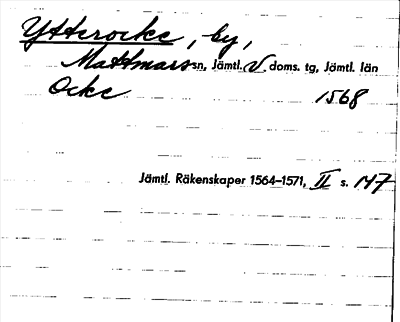 Ytterocke, by,
Mattmars sn, Jämtl. V. doms. tg, Jämtl. län
Ocke 1568
Jämtl. Räkenskaper 1564-1571, II s. 147